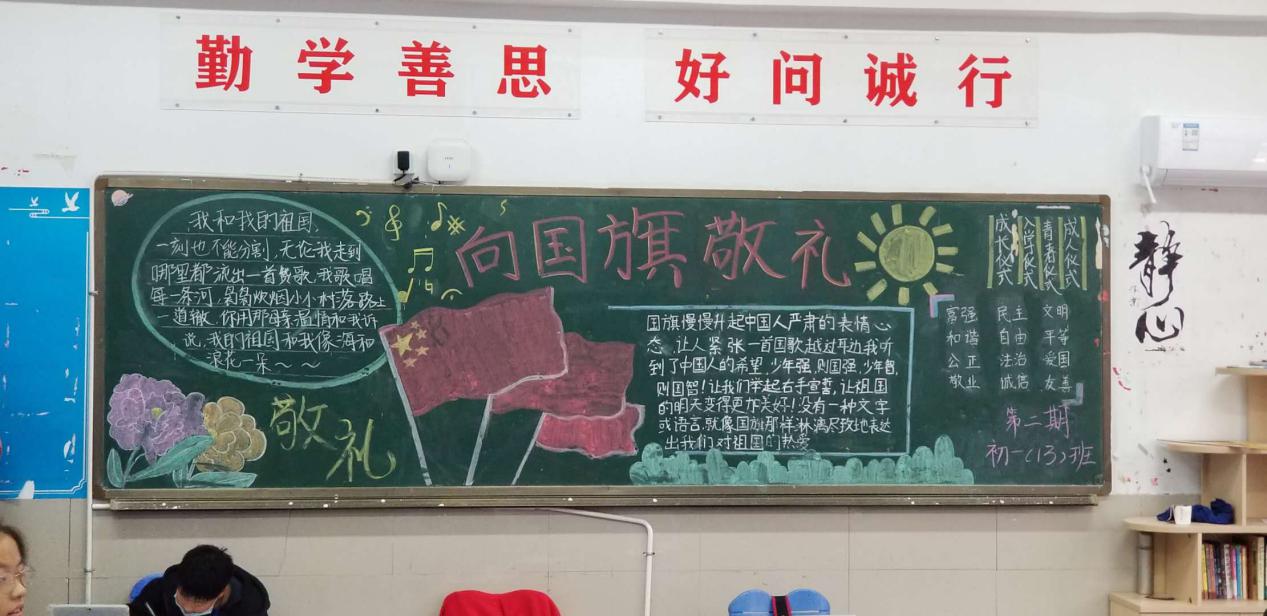 勤学善思
好问诚行
向国旗敬礼
我和我的祖国,
一刻也不能分割,无论我走到
哪里都流出一首赞歌,我歌唱
每一条河,袅袅炊烟小小村落,路上
一道辙,你用那母亲温情和我诉
我的祖国和我像海和
浪花一朵~~
敬礼
国旗慢慢升起中国人严肃的表情心
态,让人紧张一首国歌越过耳边我听
到了中国人的希望,少年强,则国强,少年智,
则国智!让我们举起右手宣誓,让祖国
的明天变得更加美好!没有一种文字
或语言,就像国旗那样淋漓尽致地表达
出我们对祖国的热爱
成长仪式
入学仪式
青春仪式
成人仪式
富强 民主 文明
和谐 自由 平等
公正 法治 爱国
敬业 诚信 友善
第二期
初一(13)班
静心